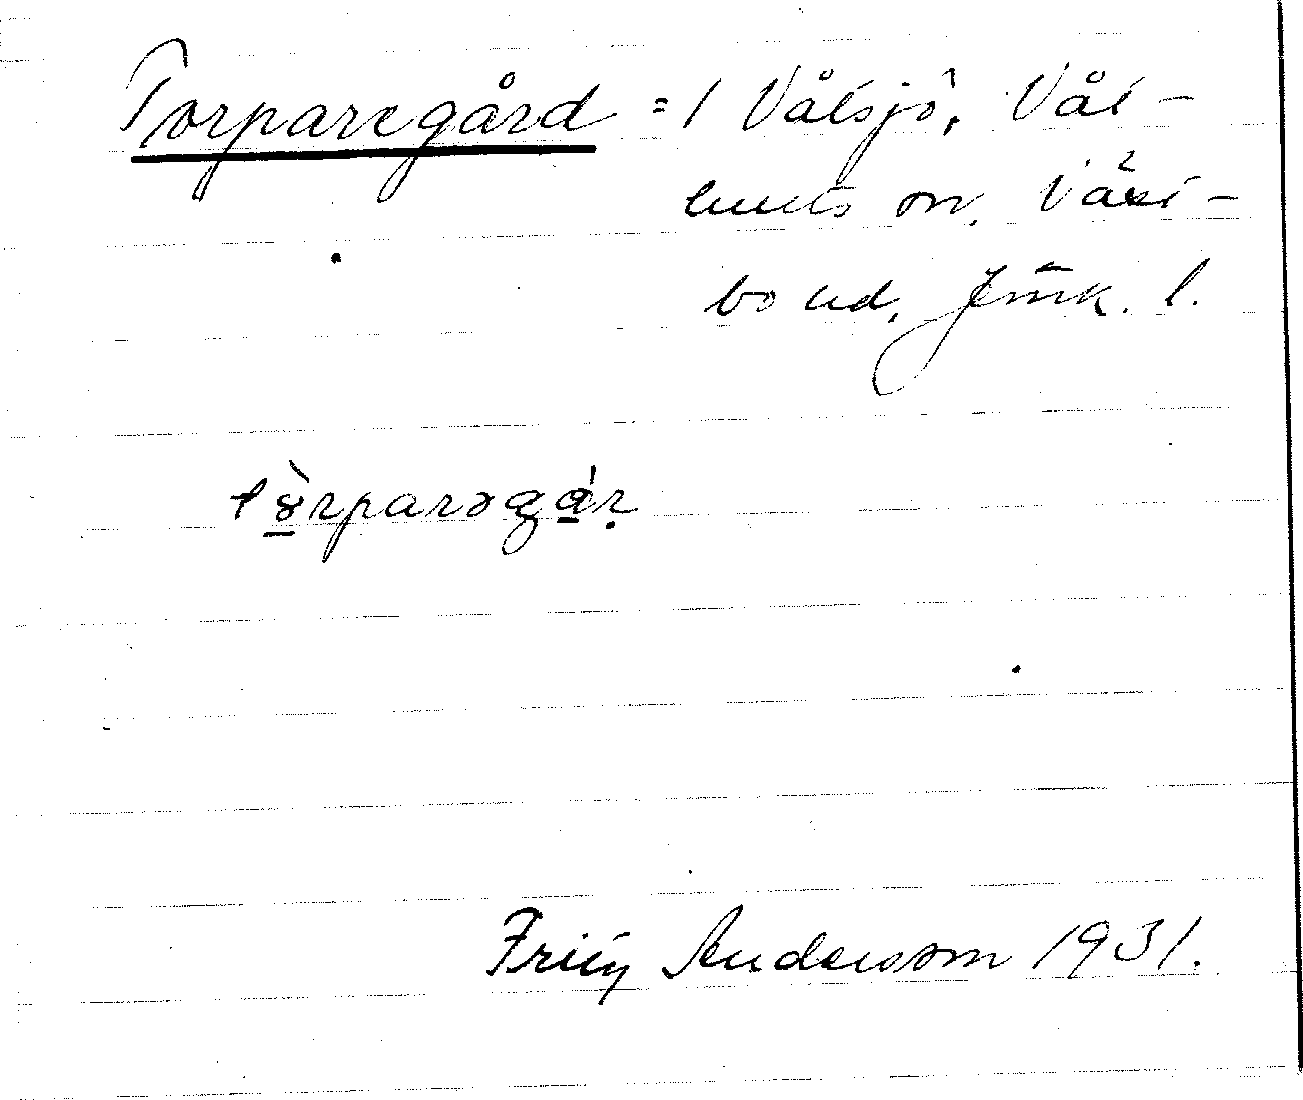 Torparegård = 1 Vålsjö, Vål-
lunds sn, Väst-
bo hd, Jönk. l.
tòrparagár
Fritz Andersson 1931.